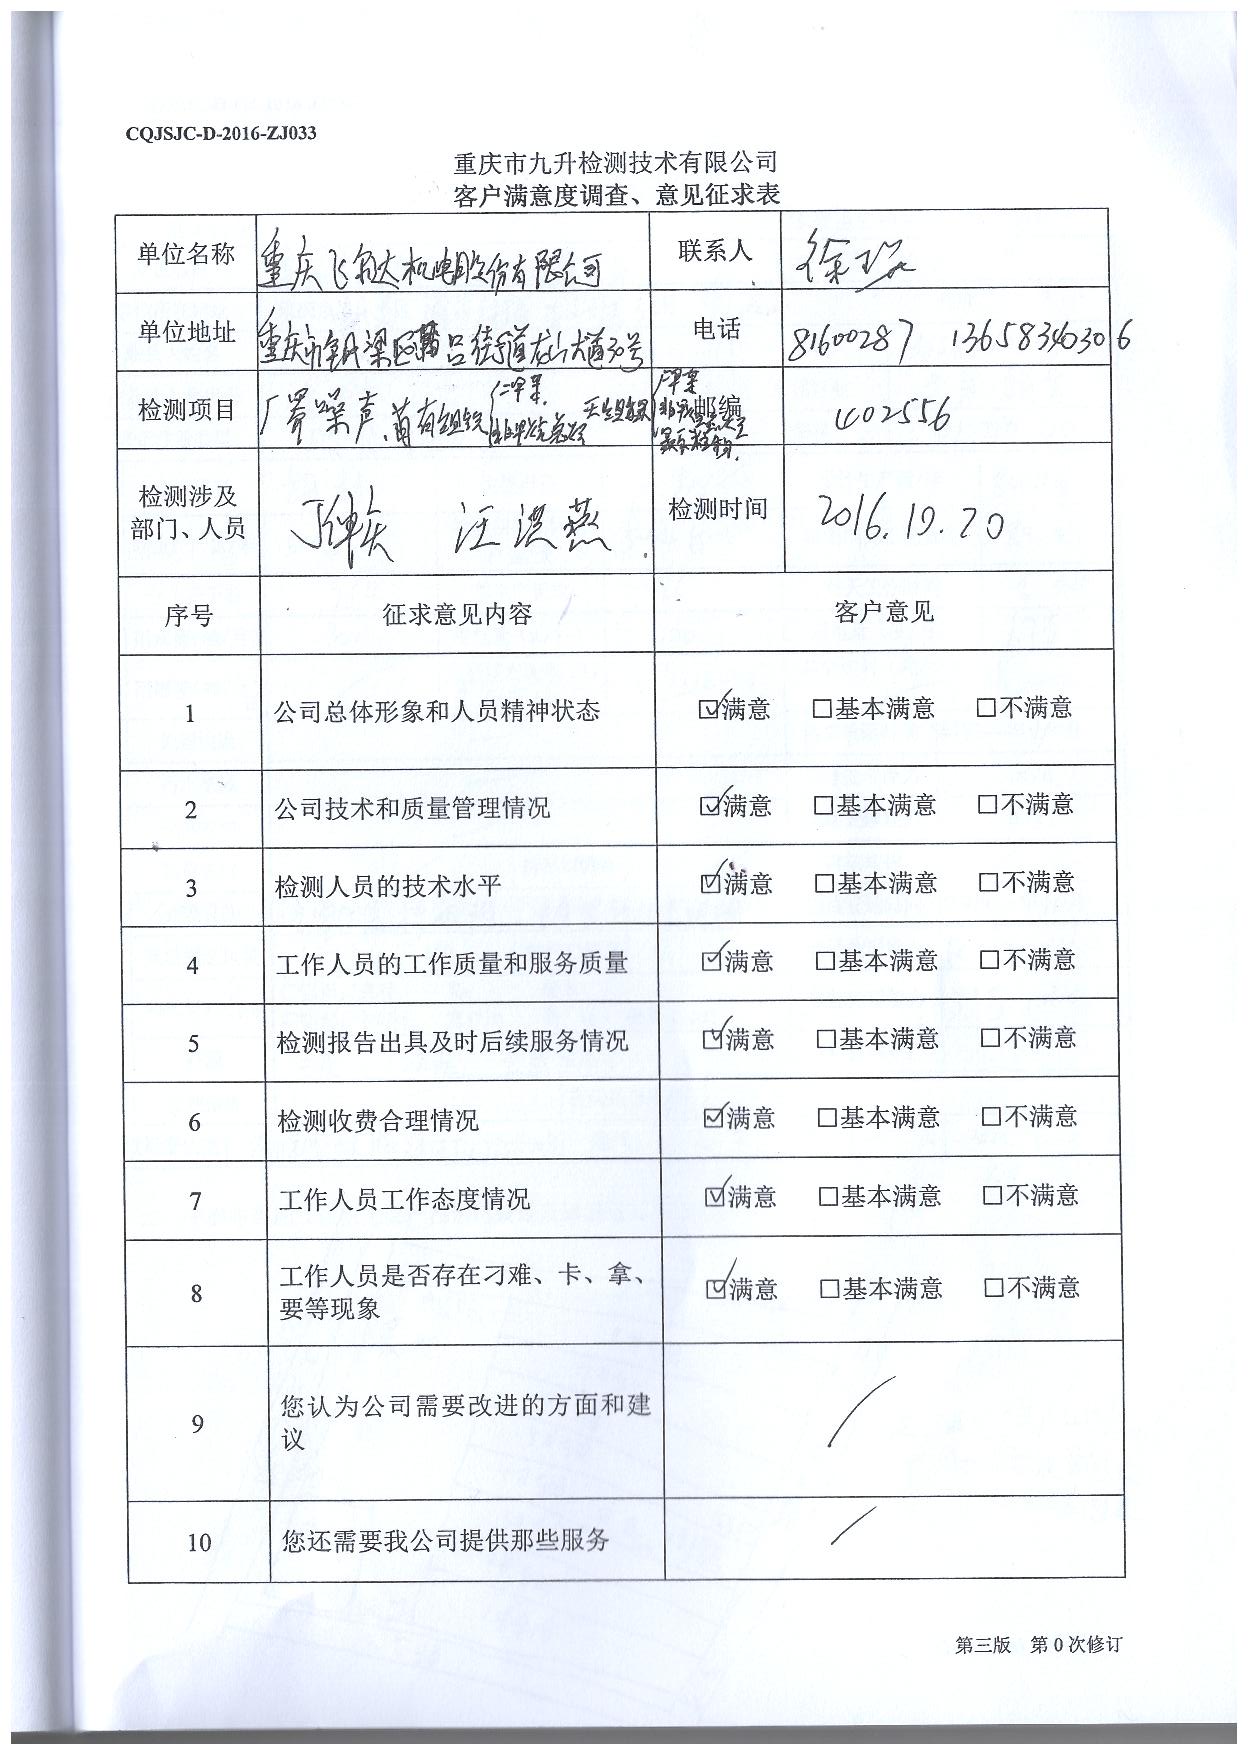 CQJSJC-D-2016-ZJ033
重庆市九升检测技术有限公司
客户满意度调查、意见征求表
单位名称 重庆飞 大机电股份有限公司 联系人 徐
单位地址 重庆市铜梁区 口街道 大道30号 电话 81600287 13658340306
检测项目 厂界噪声、 有组织 二甲苯 非甲烷总烃 无组织 二甲苯 邮编 402556
检测涉及
部门、人员 汪洪燕 检测时间 2016.10.20
序号 征求意见内容 客户意见
1 公司总体形象和人员精神状态 ☑满意 □基本满意 □不满意
2 公司技术和质量管理情况 ☑满意 □基本满意 □不满意
3 检测人员的技术水平 ☑满意 □基本满意 □不满意
4 工作人员的工作质量和服务质量 ☑满意 □基本满意 □不满意
5 检测报告出具及时后续服务情况 ☑满意 □基本满意 □不满意
6 检测收费合理情况 ☑满意 □基本满意 □不满意
7 工作人员工作态度情况 ☑满意 □基本满意 □不满意
8 工作人员是否存在刁难、卡、拿、
要等现象 ☑满意 □基本满意 □不满意
9 您认为公司需要改进的方面和建
议 /
10 您还需要我公司提供那些服务 /
第三版 第0次修订